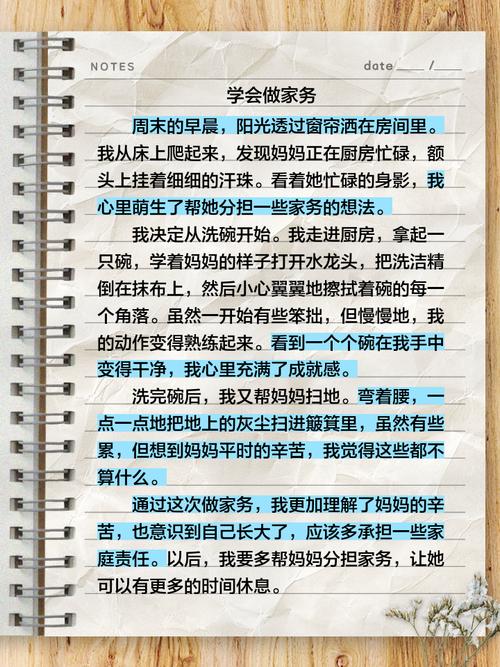 NOTES
date____ /____
学会做家务
周末的早晨，阳光透过窗帘洒在房间里。
我从床上爬起来，发现妈妈正在厨房忙碌，额
头上挂着细细的汗珠。看着她忙碌的身影，我
心里萌生了帮她分担一些家务的想法。
我决定从洗碗开始。我走进厨房，拿起一
只碗，学着妈妈的样子打开水龙头，把洗洁精
倒在抹布上，然后小心翼翼地擦拭着碗的每一
个角落。虽然一开始有些笨拙，但慢慢地，我
的动作变得熟练起来。看到一个个碗在我手中
变得干净，我心里充满了成就感。
洗完碗后，我又帮妈妈扫地。弯着腰，一
点一点地把地上的灰尘扫进簸箕里，虽然有些
累，但想到妈妈平时的辛苦，我觉得这些都不
算什么。
通过这次做家务，我更加理解了妈妈的辛
苦，也意识到自己长大了，应该多承担一些家
庭责任。以后，我要多帮妈妈分担家务，让她
可以有更多的时间休息。